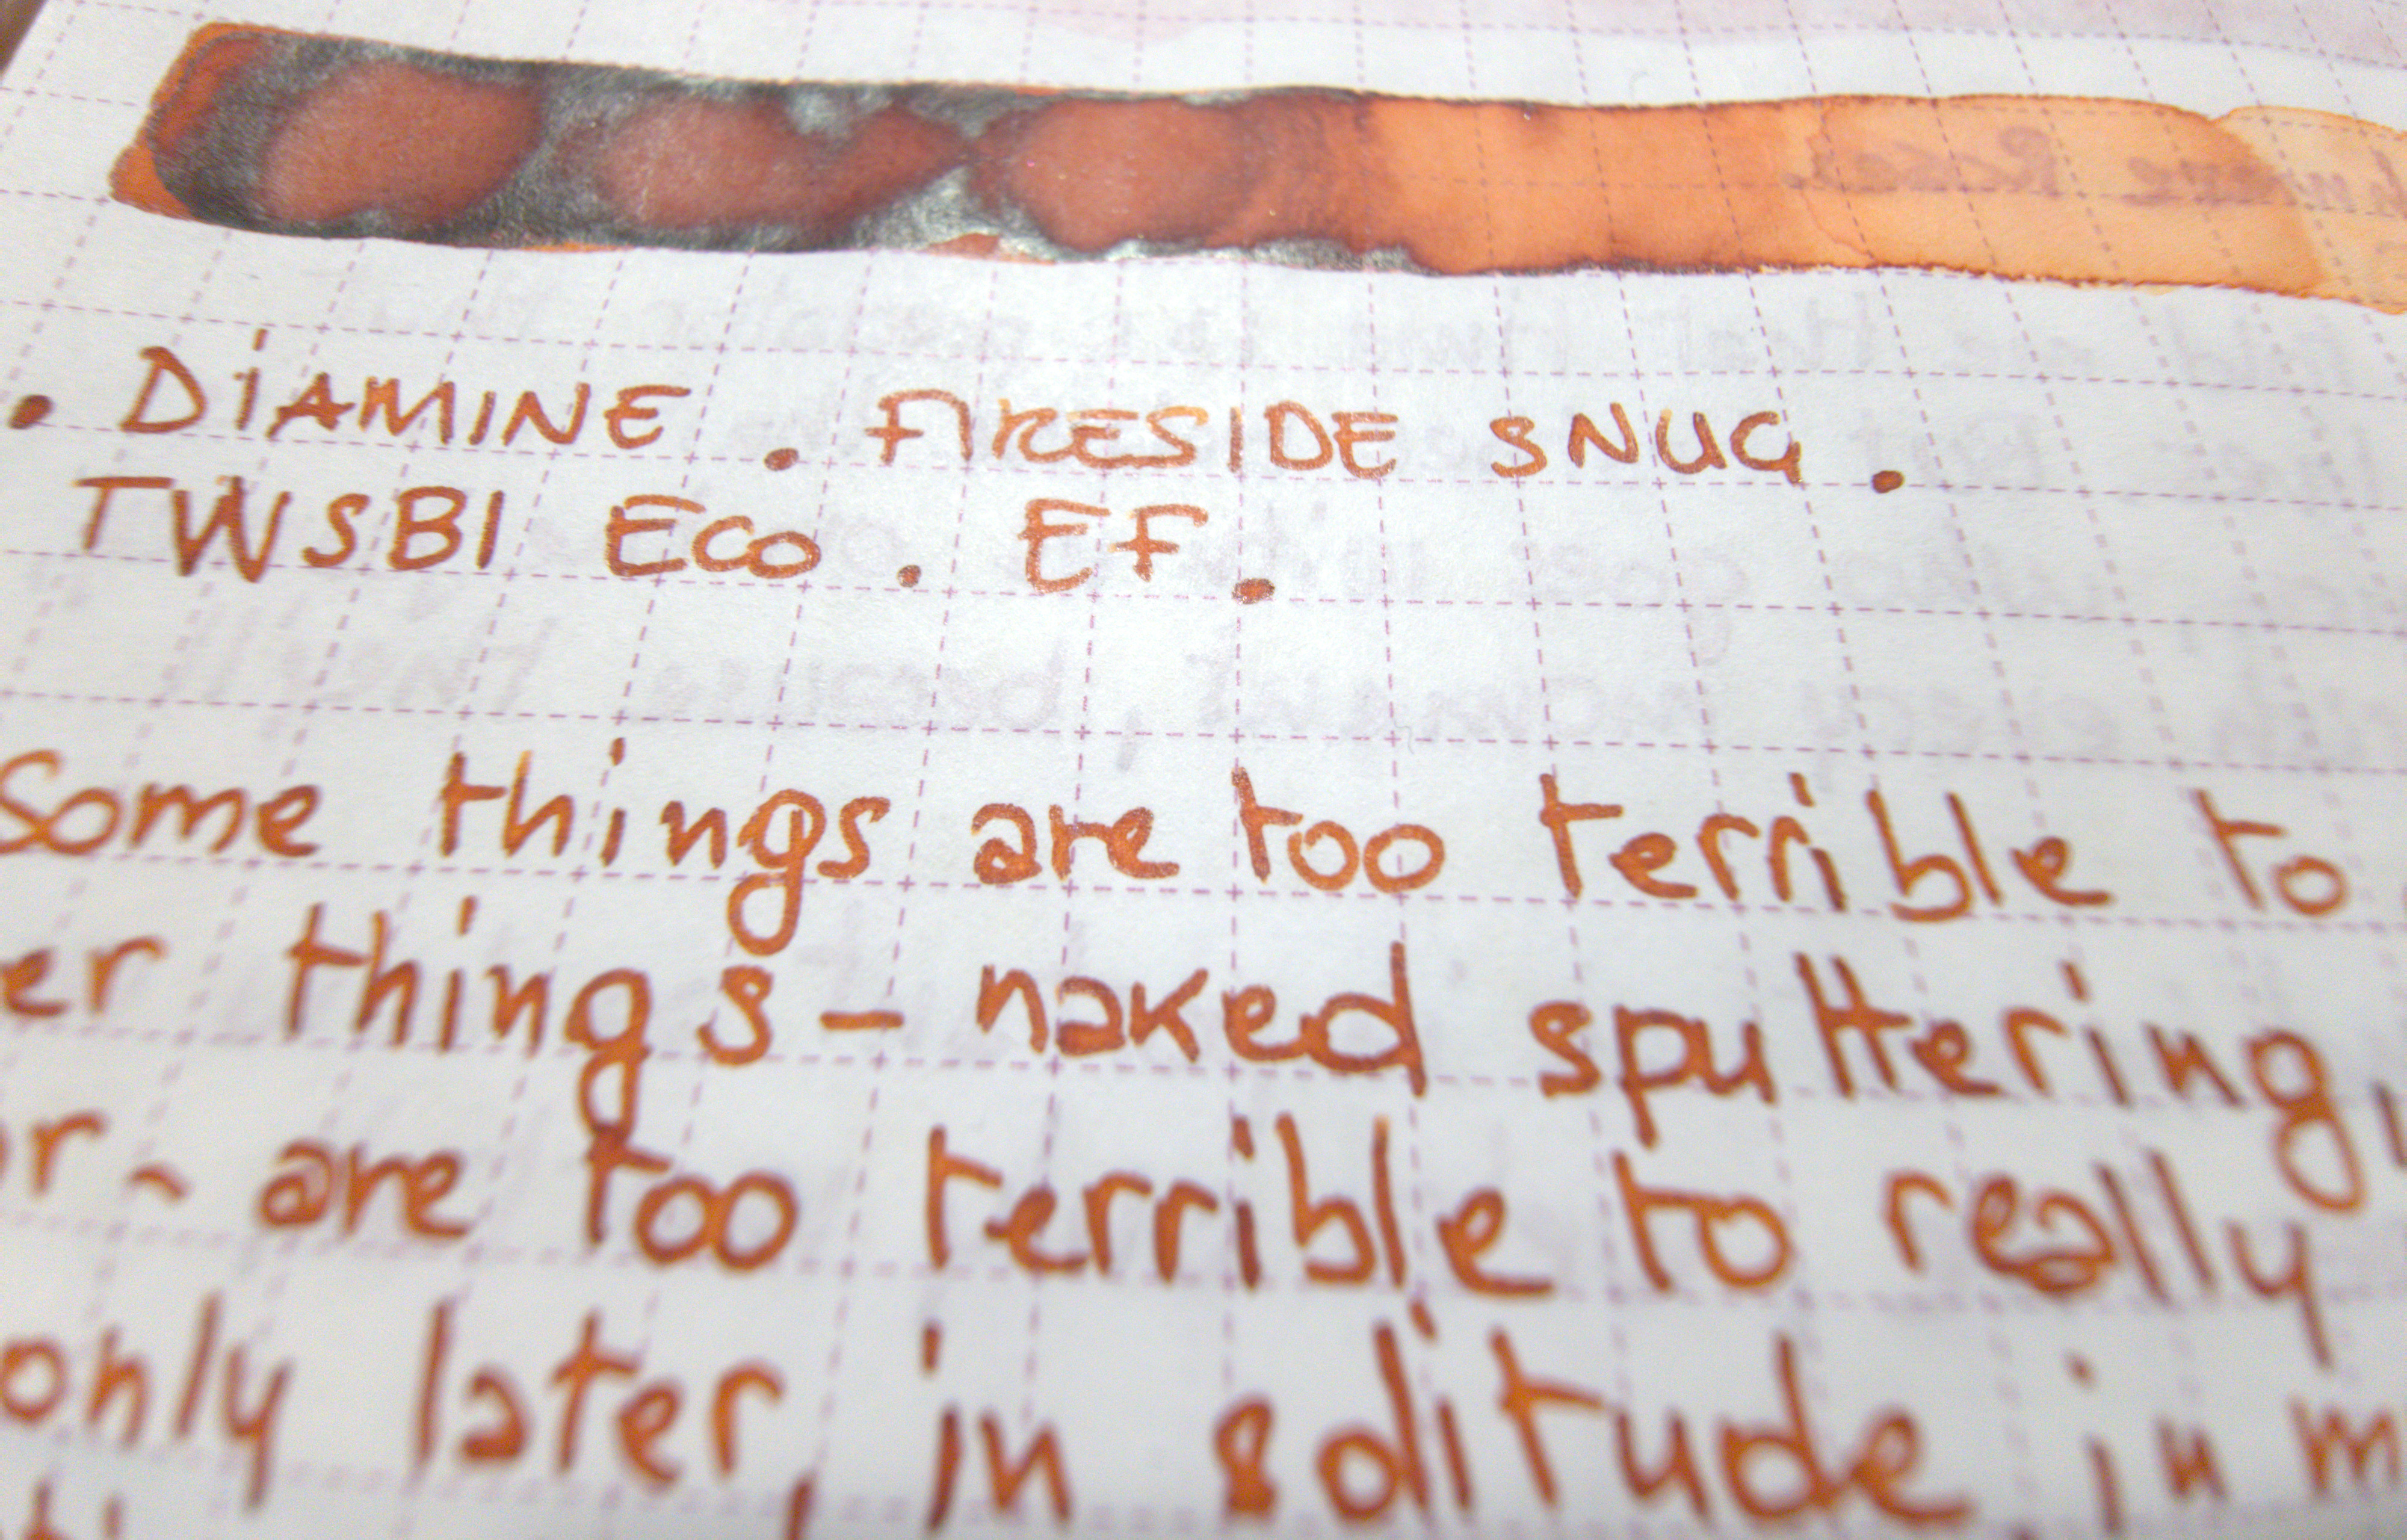 • DiAMINE . FIRESIDE SNUG .
TWSBI Eco . EF .
Some things are too terrible to
er things – naked sputtering,
r – are too terrible to really
only later, in solitude, in m